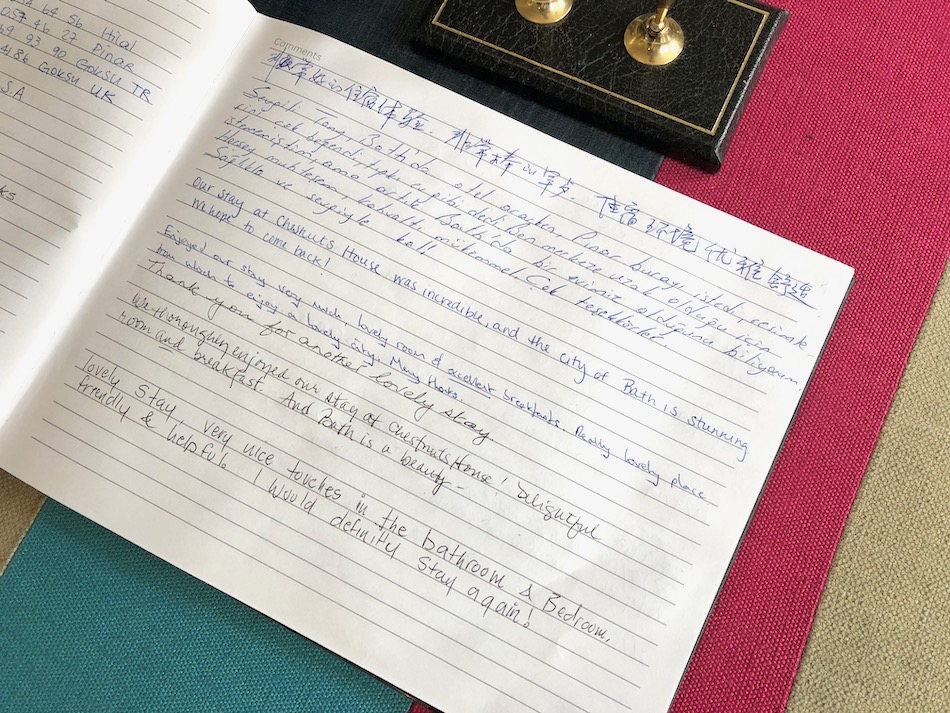 64 56 Hilal
057 46 27 Pinar
69 93 90 GOKSU TR
4186 GOKSU UK
S.A
ks
Comments
非常好的住宿体验. 非常棒的早点. 住宿环境优雅舒适.
Sevgili Tony Bath'da otel ararken Pınar burayı istedi, resimler
çok beğendi tıpkı dedi ben merkeze uzak olduğu için
istememiştim ama artık Bath'da bir evimiz olduğunu biliyorum.
Herşey muhteşem kahvaltı mükemmel Çok teşekkürler
Sağlıkla ve sevgiyle kal!
Our stay at Chestnuts House was incredible, and the city of Bath is stunning
We hope to come back!
Enjoyed our stay very much, lovely room & excellent breakfasts. Really lovely place
from which to enjoy a lovely city. Many thanks.
Thank you for another lovely stay
We thoroughly enjoyed our stay at Chestnuts House! Delightful
room and breakfast. And Bath is a beauty-
lovely Stay, very nice touches in the bathroom & Bedroom,
friendly & helpful. I would definitly Stay again!